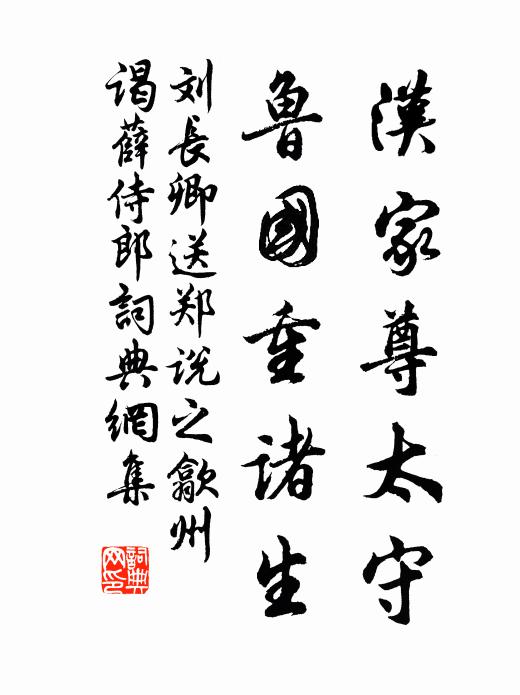 漢家尊太守
魯國重诸生
刘長卿送郑说之歙州
謁薛侍郎詞典網集
詞典
网印